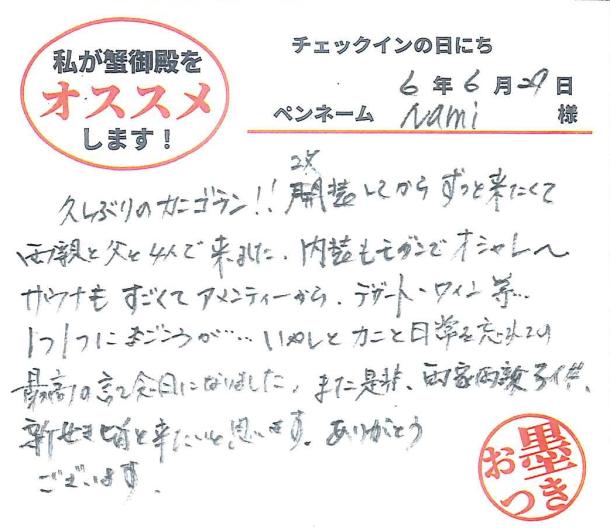 私が蟹御殿を
オススメ
します！
チェックインの日にち
6年6月27日
ペンネーム Nami 様
改
久しぶりのカニゴテン!! 開装してからずっと来たくて
両親と父と4人で来ました。内装もモダンでオシャレ〜
サウナもすごくてアメンティーから、デザート・ワイン等…
1つ1つにまごころが…… いやしとカニと日常を忘れての
最高の記念日になりました。また是非、両家両親子供、
と来たいと思います。ありがとう
ございます。
お墨つき